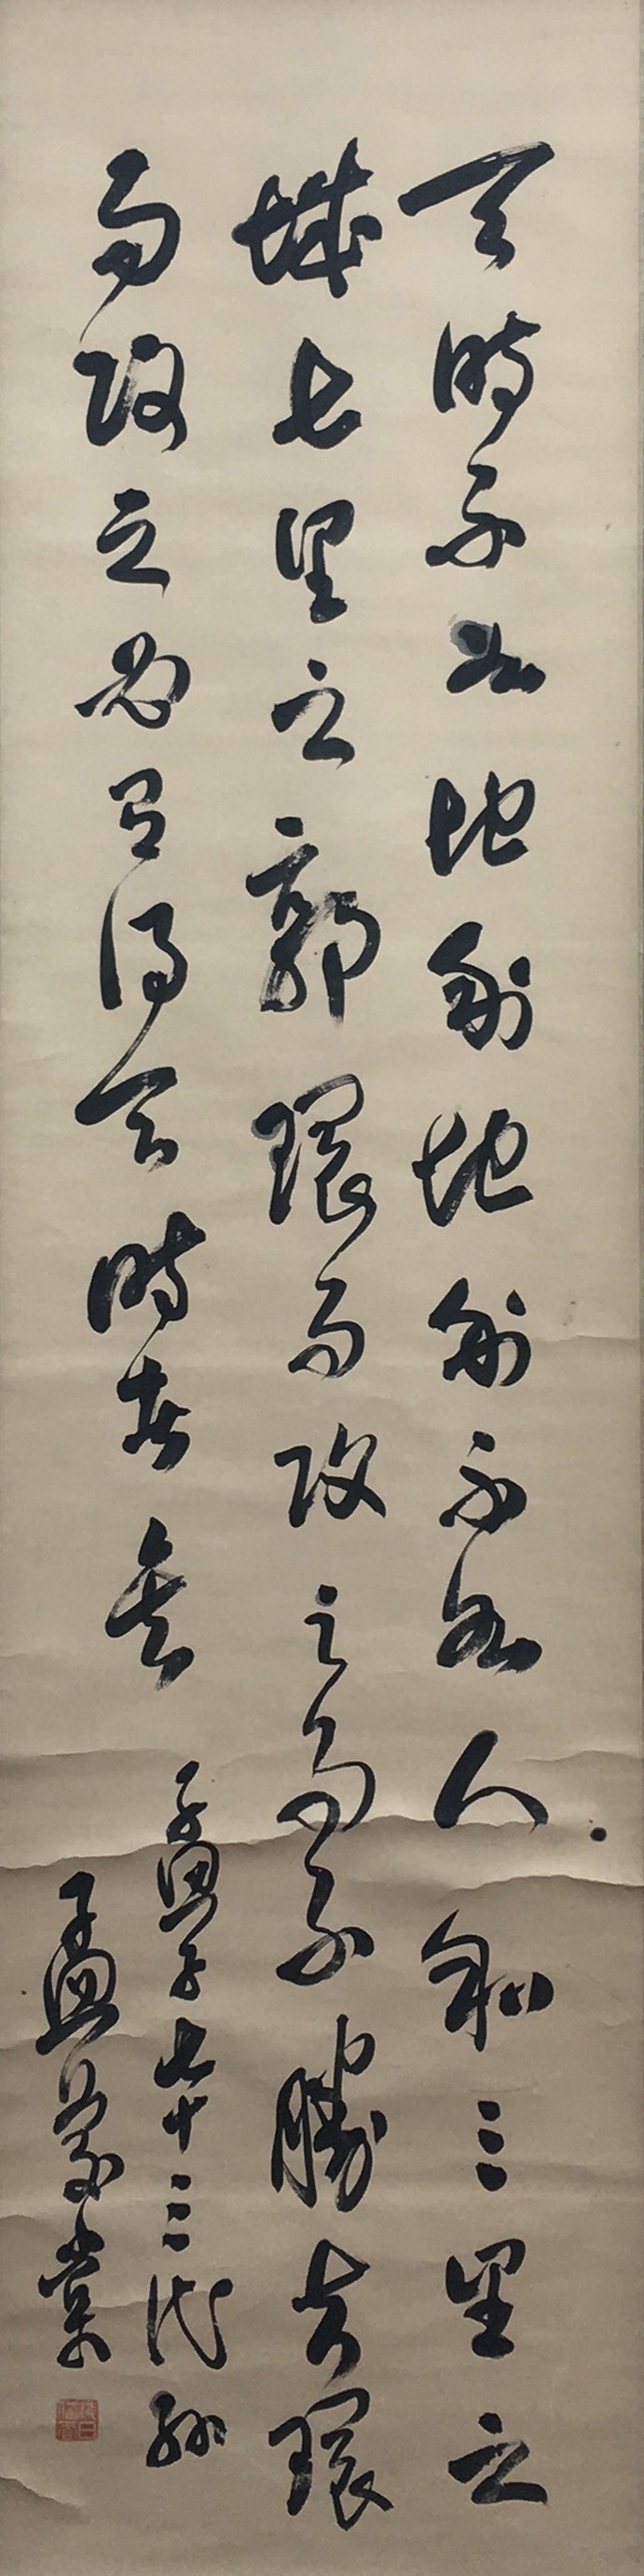 天時不如地利地利不如人和三里之
城七里之郭環而攻之而不勝夫環
而攻之必有得天時者矣
孟子七十三代孫
孟慶棠